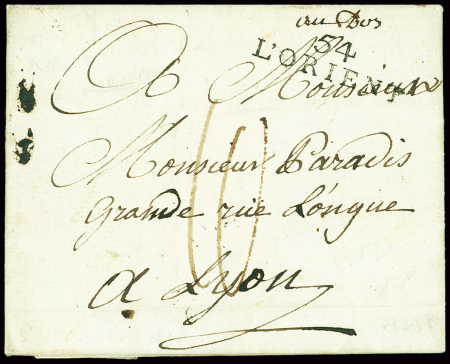 au Dos
54
L'ORIENT
A Monsieur
Monsieur Paradis
Grande rue Longue
a Lyon